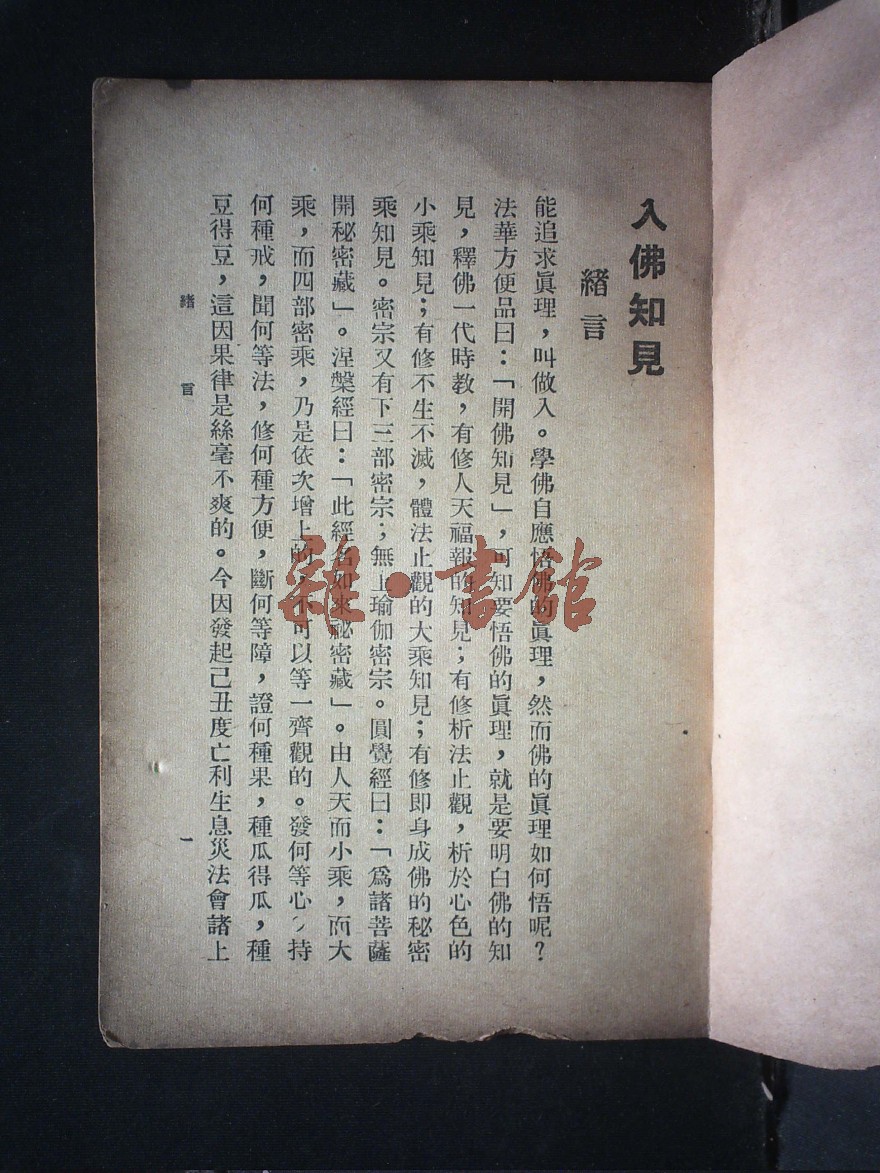 入佛知見
緒言
能追求眞理，叫做入。學佛自應悟佛的眞理，然而佛的眞理如何悟呢？
法華方便品曰：「開佛知見」，可知要悟佛的眞理，就是要明白佛的知
見，釋佛一代時教，有修人天福報的知見；有修析法止觀，析於心色的
小乘知見；有修不生不滅，體法止觀的大乘知見；有修即身成佛的秘密
乘知見。密宗又有下三部密宗；無上瑜伽密宗。圓覺經曰：「爲諸菩薩
開秘密藏」。涅槃經曰：「此經名如來祕密藏」。由人天而小乘，而大
乘，而四部密乘，乃是依次增上的，不可以等一齊觀的。發何等心，持
何種戒，聞何等法，修何種方便，斷何等障，證何種果，種瓜得瓜，種
豆得豆，這因果律是絲毫不爽的。今因發起己丑度亡利生息災法會諸上
緒言
一
雜·書館